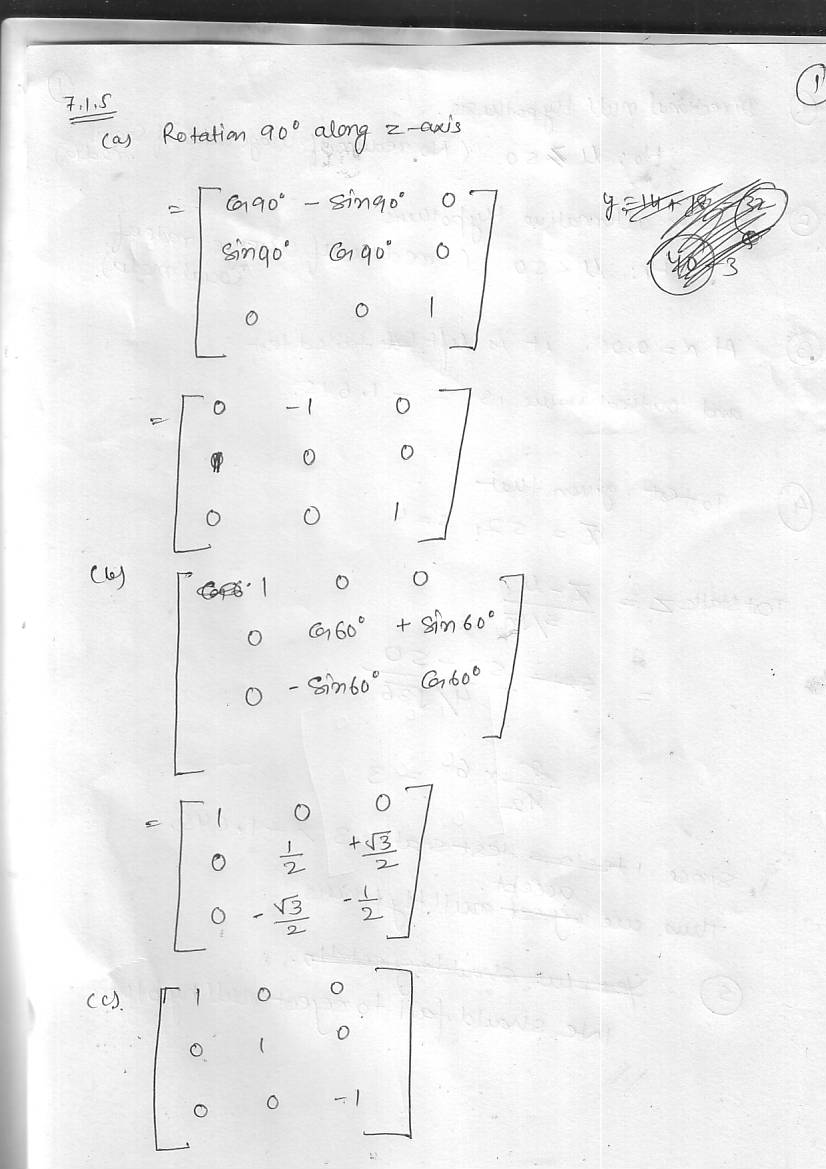 1
7.1.5
(a) Rotation 90° along z-axis
= [ Cos90° - Sin90° 0
Sin90° Cos90° 0
0 0 1 ]
y =
- 3
= [ 0 -1 0
1 0 0
0 0 1 ]
(b) [ 1 0 0
0 Cos60° + Sin60°
0 - Sin60° Cos60° ]
= [ 1 0 0
0 1/2 +√3/2
0 - √3/2 - 1/2 ]
(c). [ 1 0 0
0 1 0
0 0 -1 ]